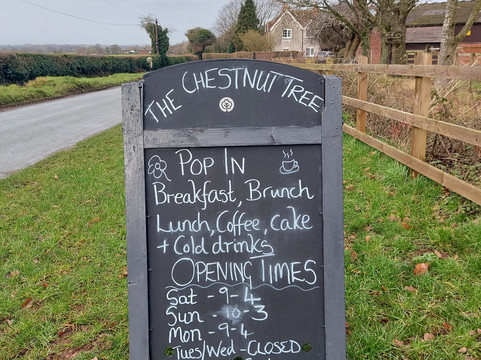 THE CHESTNUT TREE
POP IN
BREAKFAST, BRUNCH
LUNCH, COFFEE, CAKE
+ COLD DRINKS
OPENING TIMES
SAT - 9-4
SUN - 10-3
MON - 9-4
TUES/WED - CLOSED